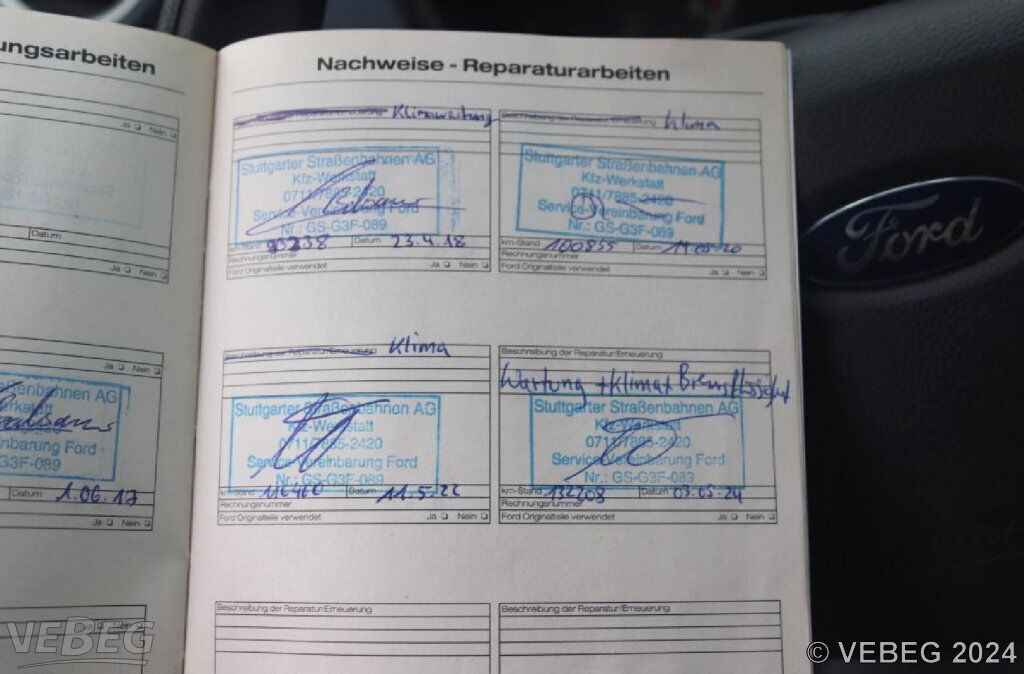 ungsarbeiten
Ja Nein
Datum
Ja Nein
Ja Nein
Straßenbahnen AG
nbarung Ford
G3F-089
Datum 1.06.17
Ja Nein
Nachweise - Reparaturarbeiten
Klimawartung
Stuttgarter Straßenbahnen AG
Kfz-Werkstatt
0711/7885-2420
Service-Vereinbarung Ford
Nr.: GS-G3F-089
Datum 23.4.18
Rechnungsnummer
Ford Originalteile verwendet Ja Nein
Beschreibung der Reparatur/Erneuerung Klima
Stuttgarter Straßenbahnen AG
Kfz-Werkstatt
0711/7885-2420
Service-Vereinbarung Ford
Nr.: GS-G3F-089
km-Stand 100855 Datum 11.05.20
Rechnungsnummer
Ford Originalteile verwendet Ja Nein
Beschreibung der Reparatur/Erneuerung Klima
Stuttgarter Straßenbahnen AG
Kfz-Werkstatt
0711/7885-2420
Service-Vereinbarung Ford
Nr.: GS-G3F-089
km-Stand 116460 Datum 11.5.22
Rechnungsnummer
Ford Originalteile verwendet Ja Nein
Beschreibung der Reparatur/Erneuerung
Wartung + Klima + Bremsflüssigkeit
Stuttgarter Straßenbahnen AG
Kfz-Werkstatt
0711/7885-2420
Service-Vereinbarung Ford
Nr.: GS-G3F-089
km-Stand 132208 Datum 03.05.24
Rechnungsnummer
Ford Originalteile verwendet Ja Nein
Beschreibung der Reparatur/Erneuerung
Beschreibung der Reparatur/Erneuerung
Ford
VEBEG
© VEBEG 2024